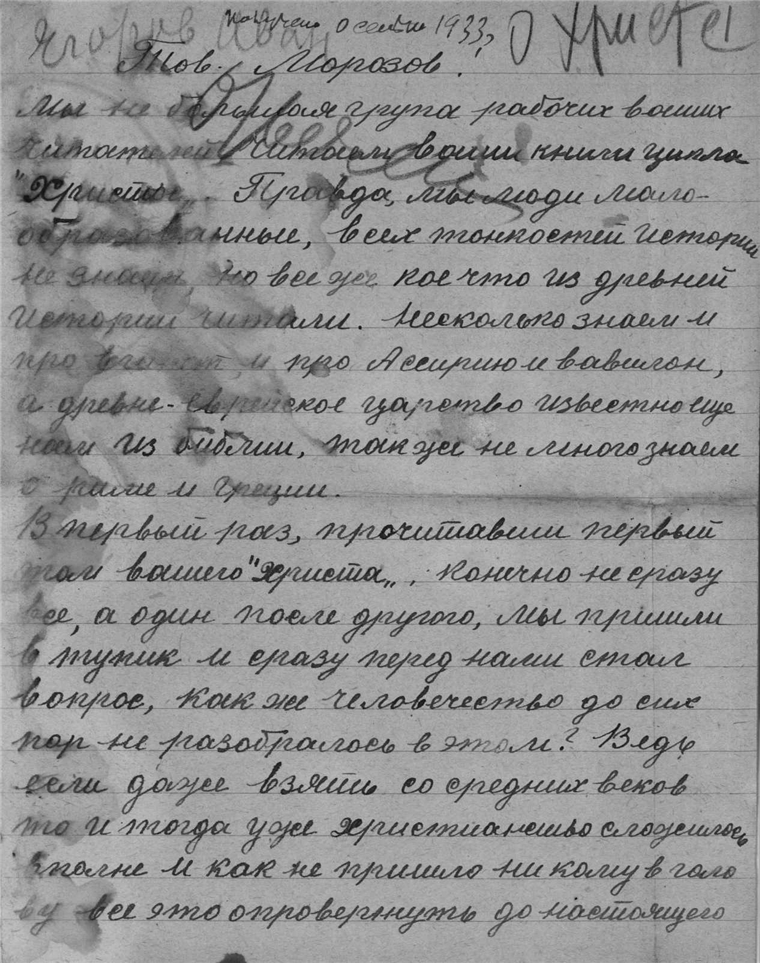 получено осенью 1933 г
Егоров Иван
О Христе!
Тов. Морозов!
Мы не большая група рабочих ваших
читателей читаем ваши книги цикла
"Христос„. Правда, мы люди мало-
образованные, всех тонкостей истории
не знаем, но все же кое что из древней
истории читали. Несколько знаем и
про египет и про Ассирию и вавилон,
а древне-еврейское царство известно еще
нам из библии, так же не много знаем
о риме и греции.
В первый раз, прочитавши первый
том вашего "Христа„, конечно не сразу
все, а один после другого, мы пришли
в тупик и сразу перед нами стал
вопрос, как же человечество до сих
пор не разобралось в этом? Ведь
если даже взять со средних веков
то и тогда уже христианство сложилось
вполне и как не пришло ни кому в голо
ву все это опровергнуть до настоящего